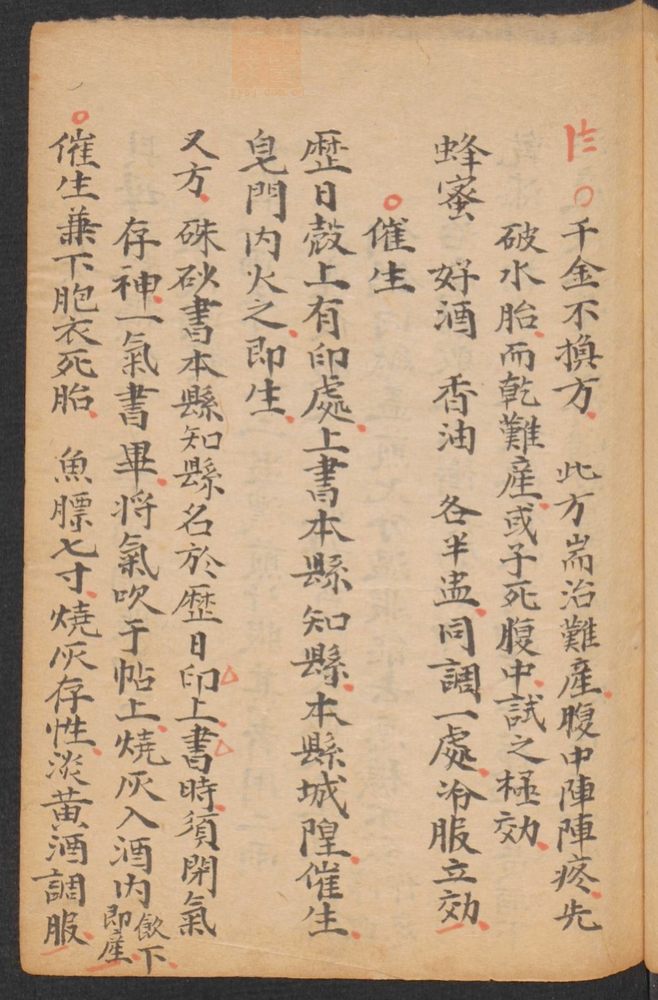 千金不換方 此方耑治難產腹中陣陣疼先
破水胎而乾難產或子死腹中試之極効
蜂蜜 好酒 香油 各半盅同調一處冷服立効
催生
歷日殼上有印處上書本縣知縣本縣城隍催生
皂門內火之即生
又方 硃砂書本縣知縣名於歷日印上書時須閉氣
存神一氣書畢將氣吹于帖上燒灰入酒內飲下即產
催生兼下胞衣死胎 魚膘七寸燒灰存性淡黃酒調服